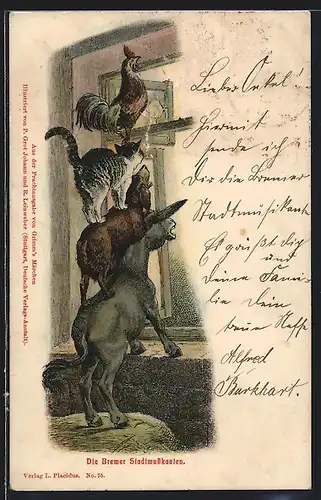 Lieber Onkel!
Hiermit
sende ich
Dir die Bremer
Stadtmusikanten
Es grüßt dich
und
deine Fami-
lie Dein
treuer Neffe
Alfred
Burkhart.
Aus der Prachtausgabe von Grimm's Märchen
Illustriert von P. Grot Johann und R. Leinweber (Stuttgart, Deutsche Verlags-Anstalt).
Die Bremer Stadtmußkanten.
Verlag L. Placidus. No. 75.